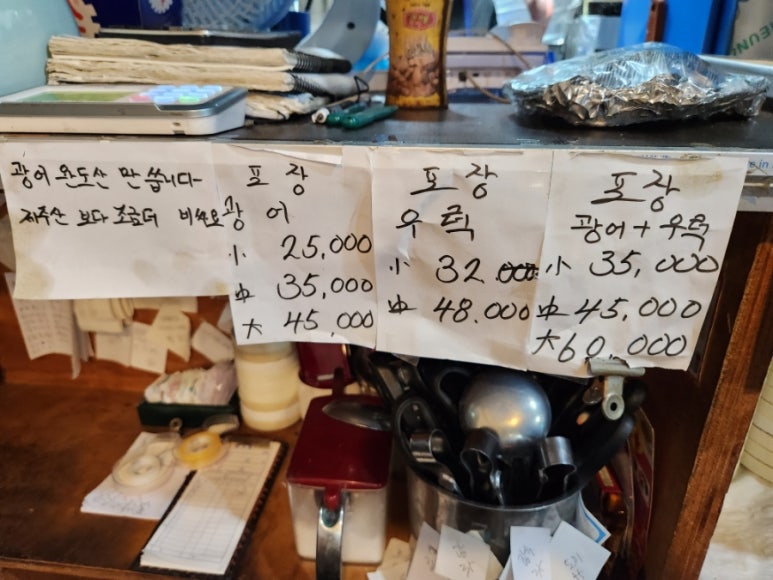 광어 완도산 만 씁니다-
제주산 보다 조금더 비싸요
포 장
광 어
小 25,000
中 35,000
大 45,000
포 장
우 럭
小 32.000
中 48.000
포장
광어 + 우럭
小 35,000
中 45,000
大 60,000